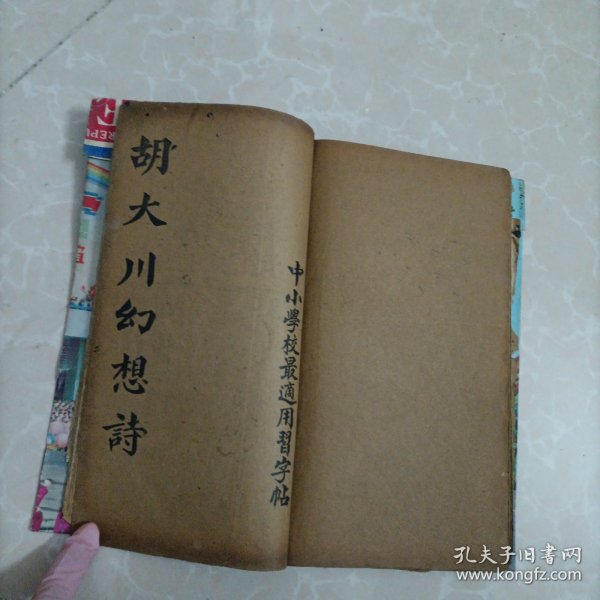 胡大川幻想詩
中小學校最適用習字帖
REPU
孔夫子旧書网
www.kongfz.com